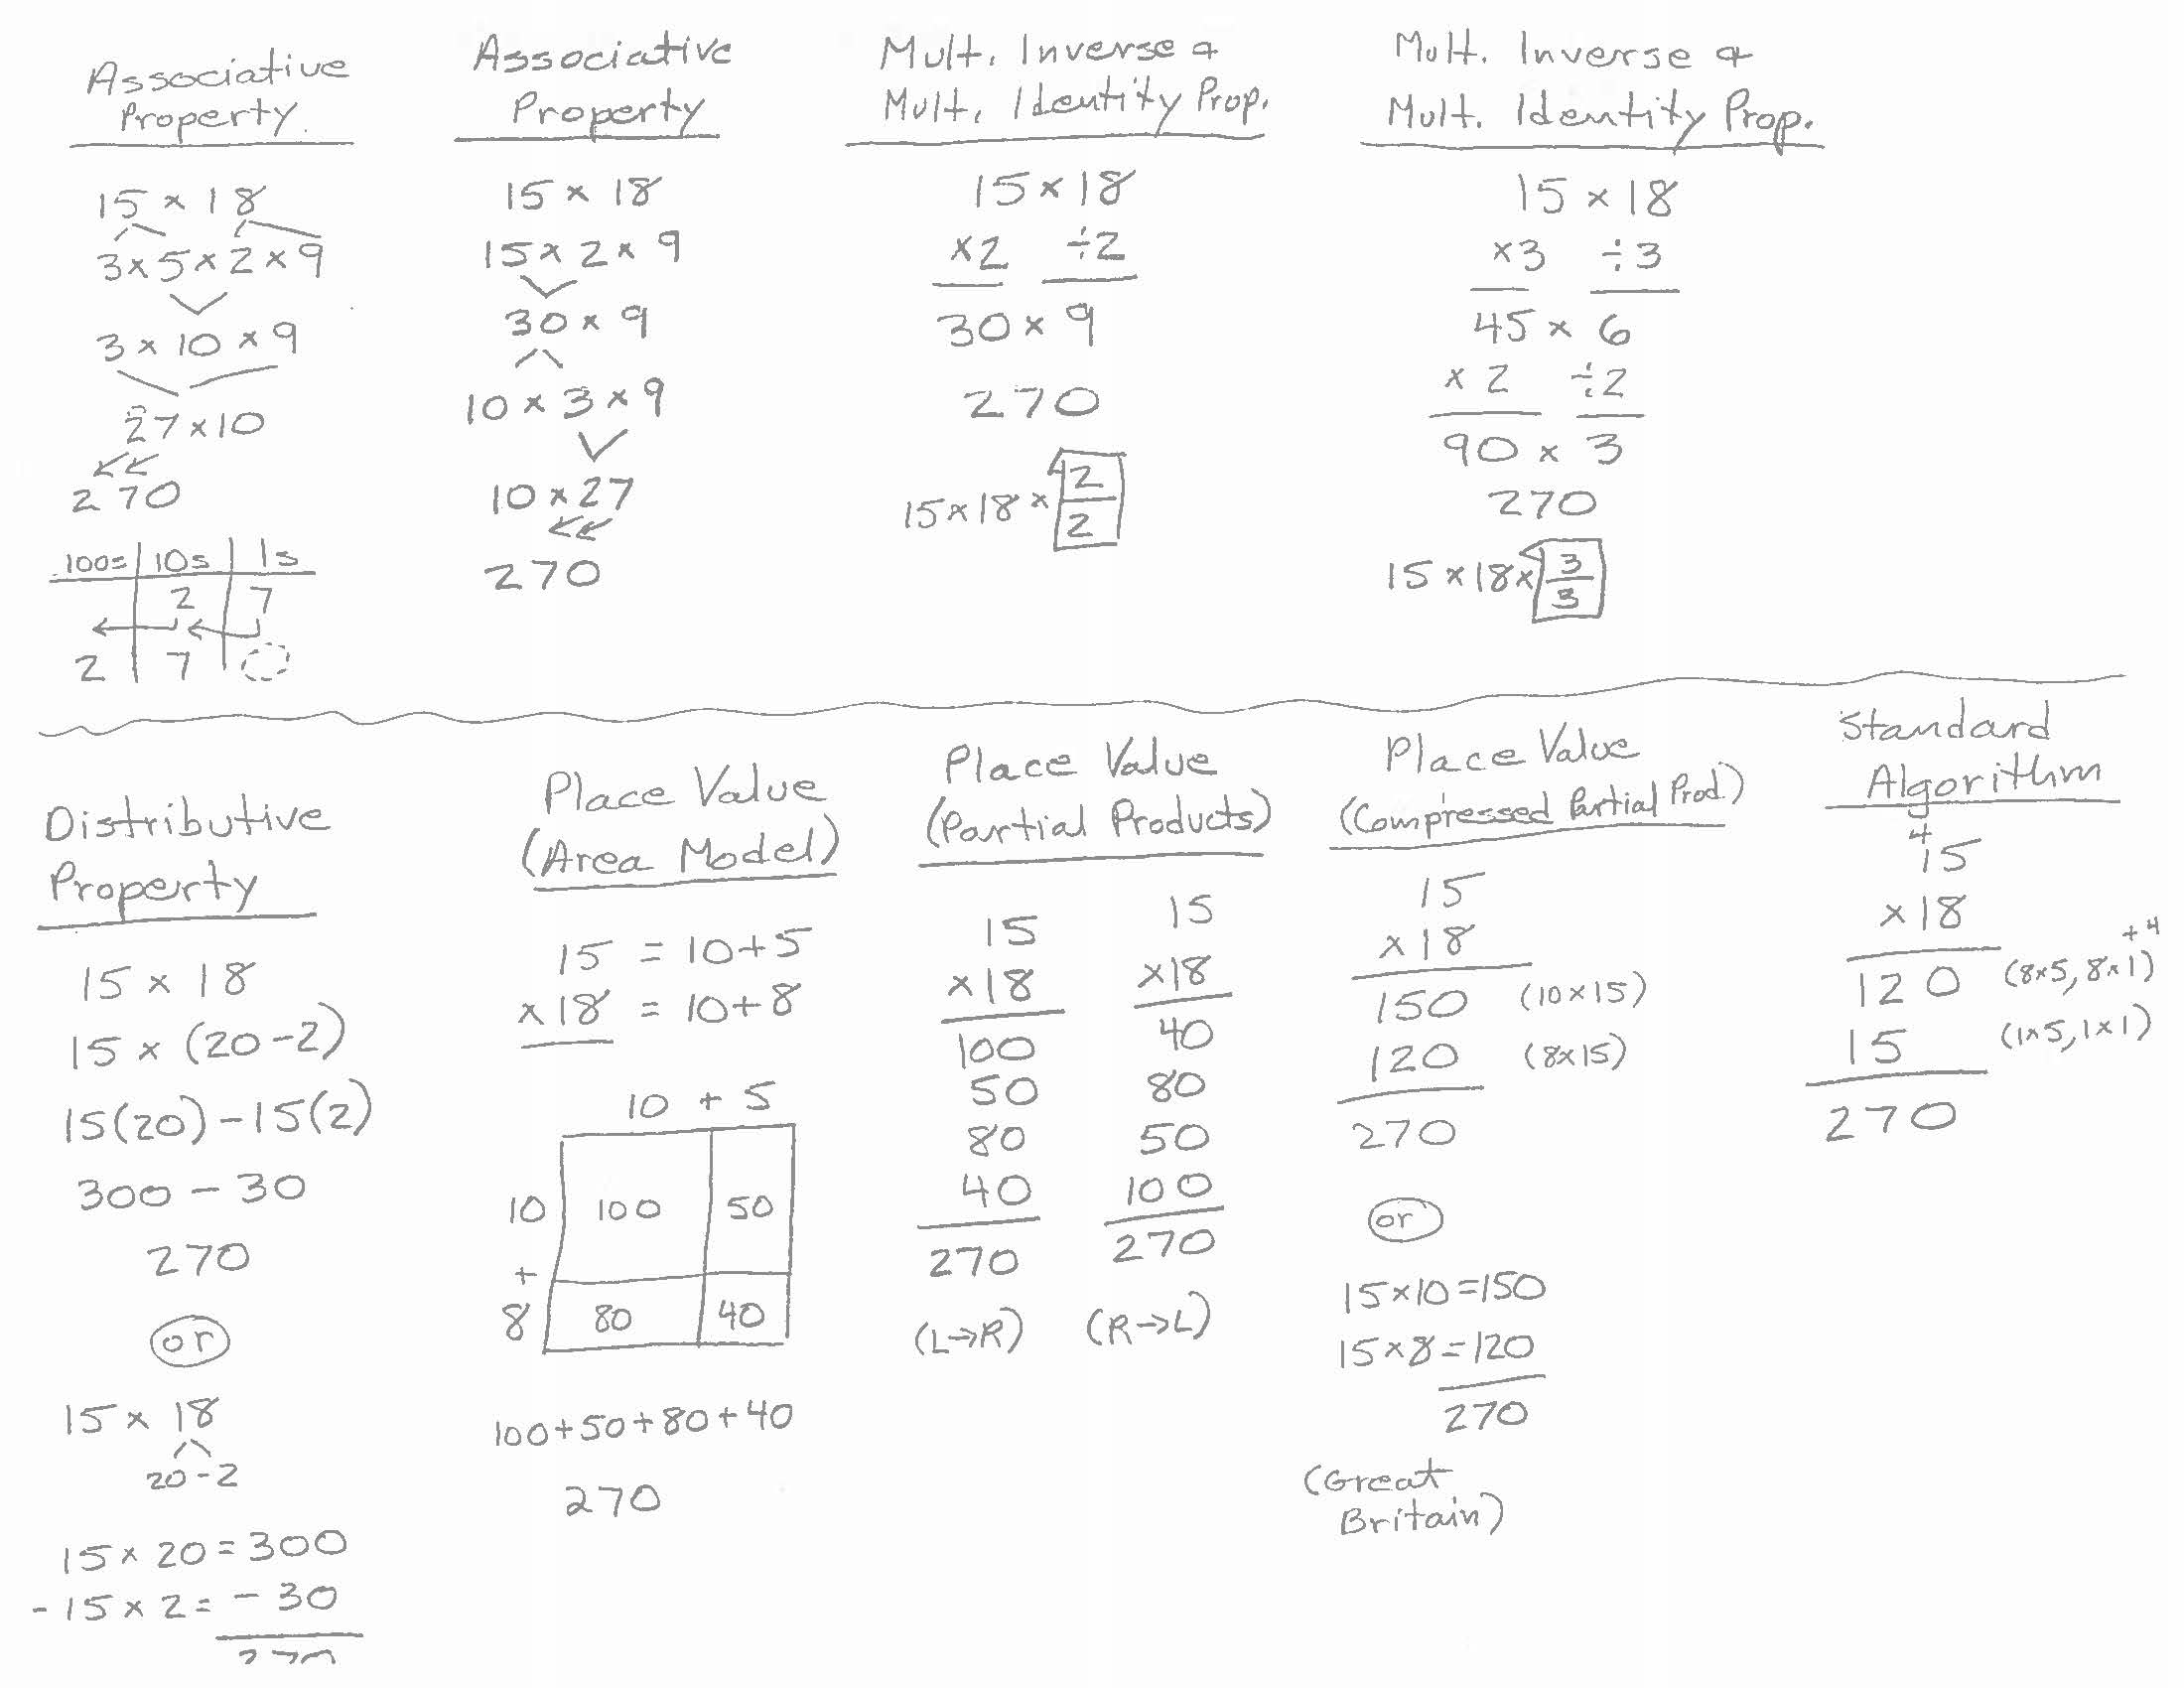 Associative
Property
15 × 18
3×5×2×9
3 × 10 × 9
27×10
270
100s 10s 1s
2 7
2 7
Associative
Property
15 × 18
15 × 2 × 9
30 × 9
10 × 3 × 9
10 × 27
270
Mult. Inverse &
Mult. Identity Prop.
15 × 18
×2 ÷2
30 × 9
270
15×18× 2/2
Mult. Inverse &
Mult. Identity Prop.
15 × 18
×3 ÷3
45 × 6
× 2 ÷2
90 × 3
270
15 ×18× 3/3
Distributive
Property
15 × 18
15 × (20-2)
15(20)-15(2)
300 - 30
270
or
15 × 18
20-2
15 × 20 = 300
-15 × 2 = - 30
270
Place Value
(Area Model)
15 = 10+5
×18 = 10+8
10 + 5
10 100 50
+
8 80 40
100+50+80+40
270
Place Value
(Partial Products)
15
×18
100
50
80
40
270
(L→R)
15
×18
40
80
50
100
270
(R→L)
Place Value
(Compressed Partial Prod.)
15
×18
150 (10×15)
120 (8×15)
270
or
15×10=150
15×8=120
270
(Great
Britain)
Standard
Algorithm
4
15
×18
+4
120 (8×5, 8×1)
15 (1×5, 1×1)
270